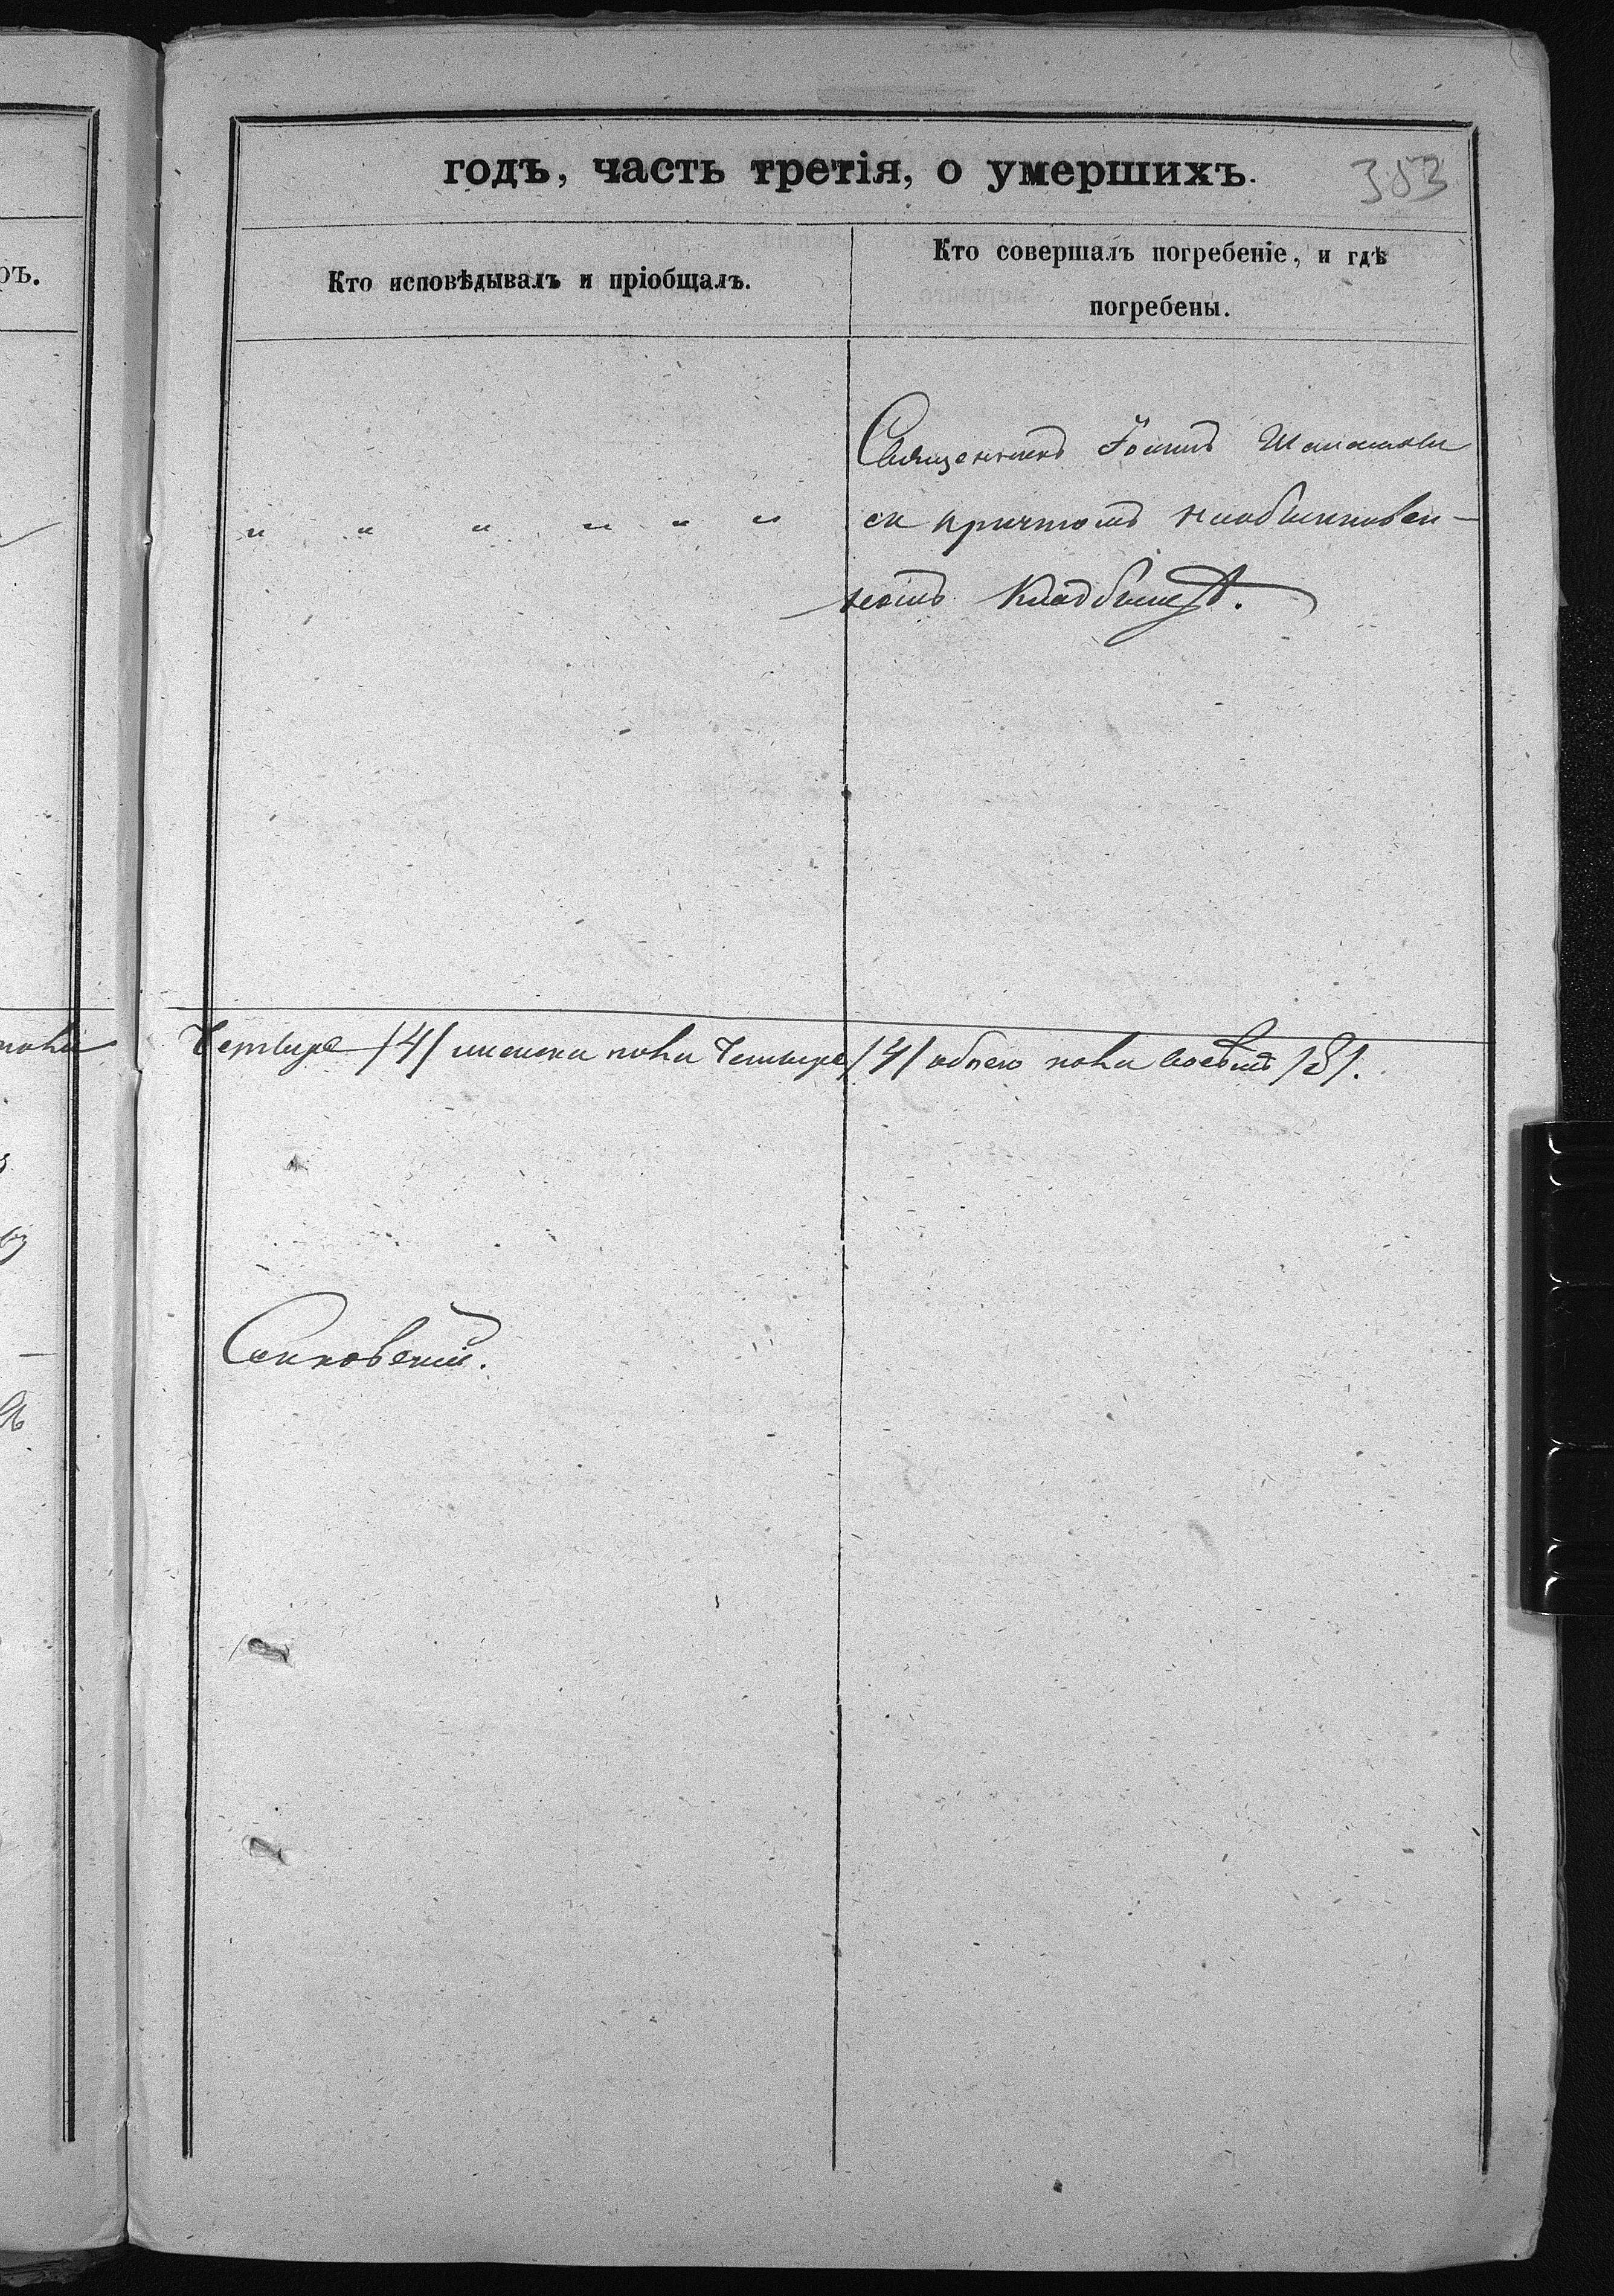 годъ, часть третія, о умершихъ.
383
ръ.
Кто исповѣдывалъ и пріобщалъ.
Кто совершалъ погребеніе, и гдѣ
погребены.
Священникъ Іоаннъ
" " " " " "
съ причтомъ на обыкновен-
номъ кладбищѣ.
пола
Четыре /4/ женска пола Четыре /4/ обоего пола восемь /8/.